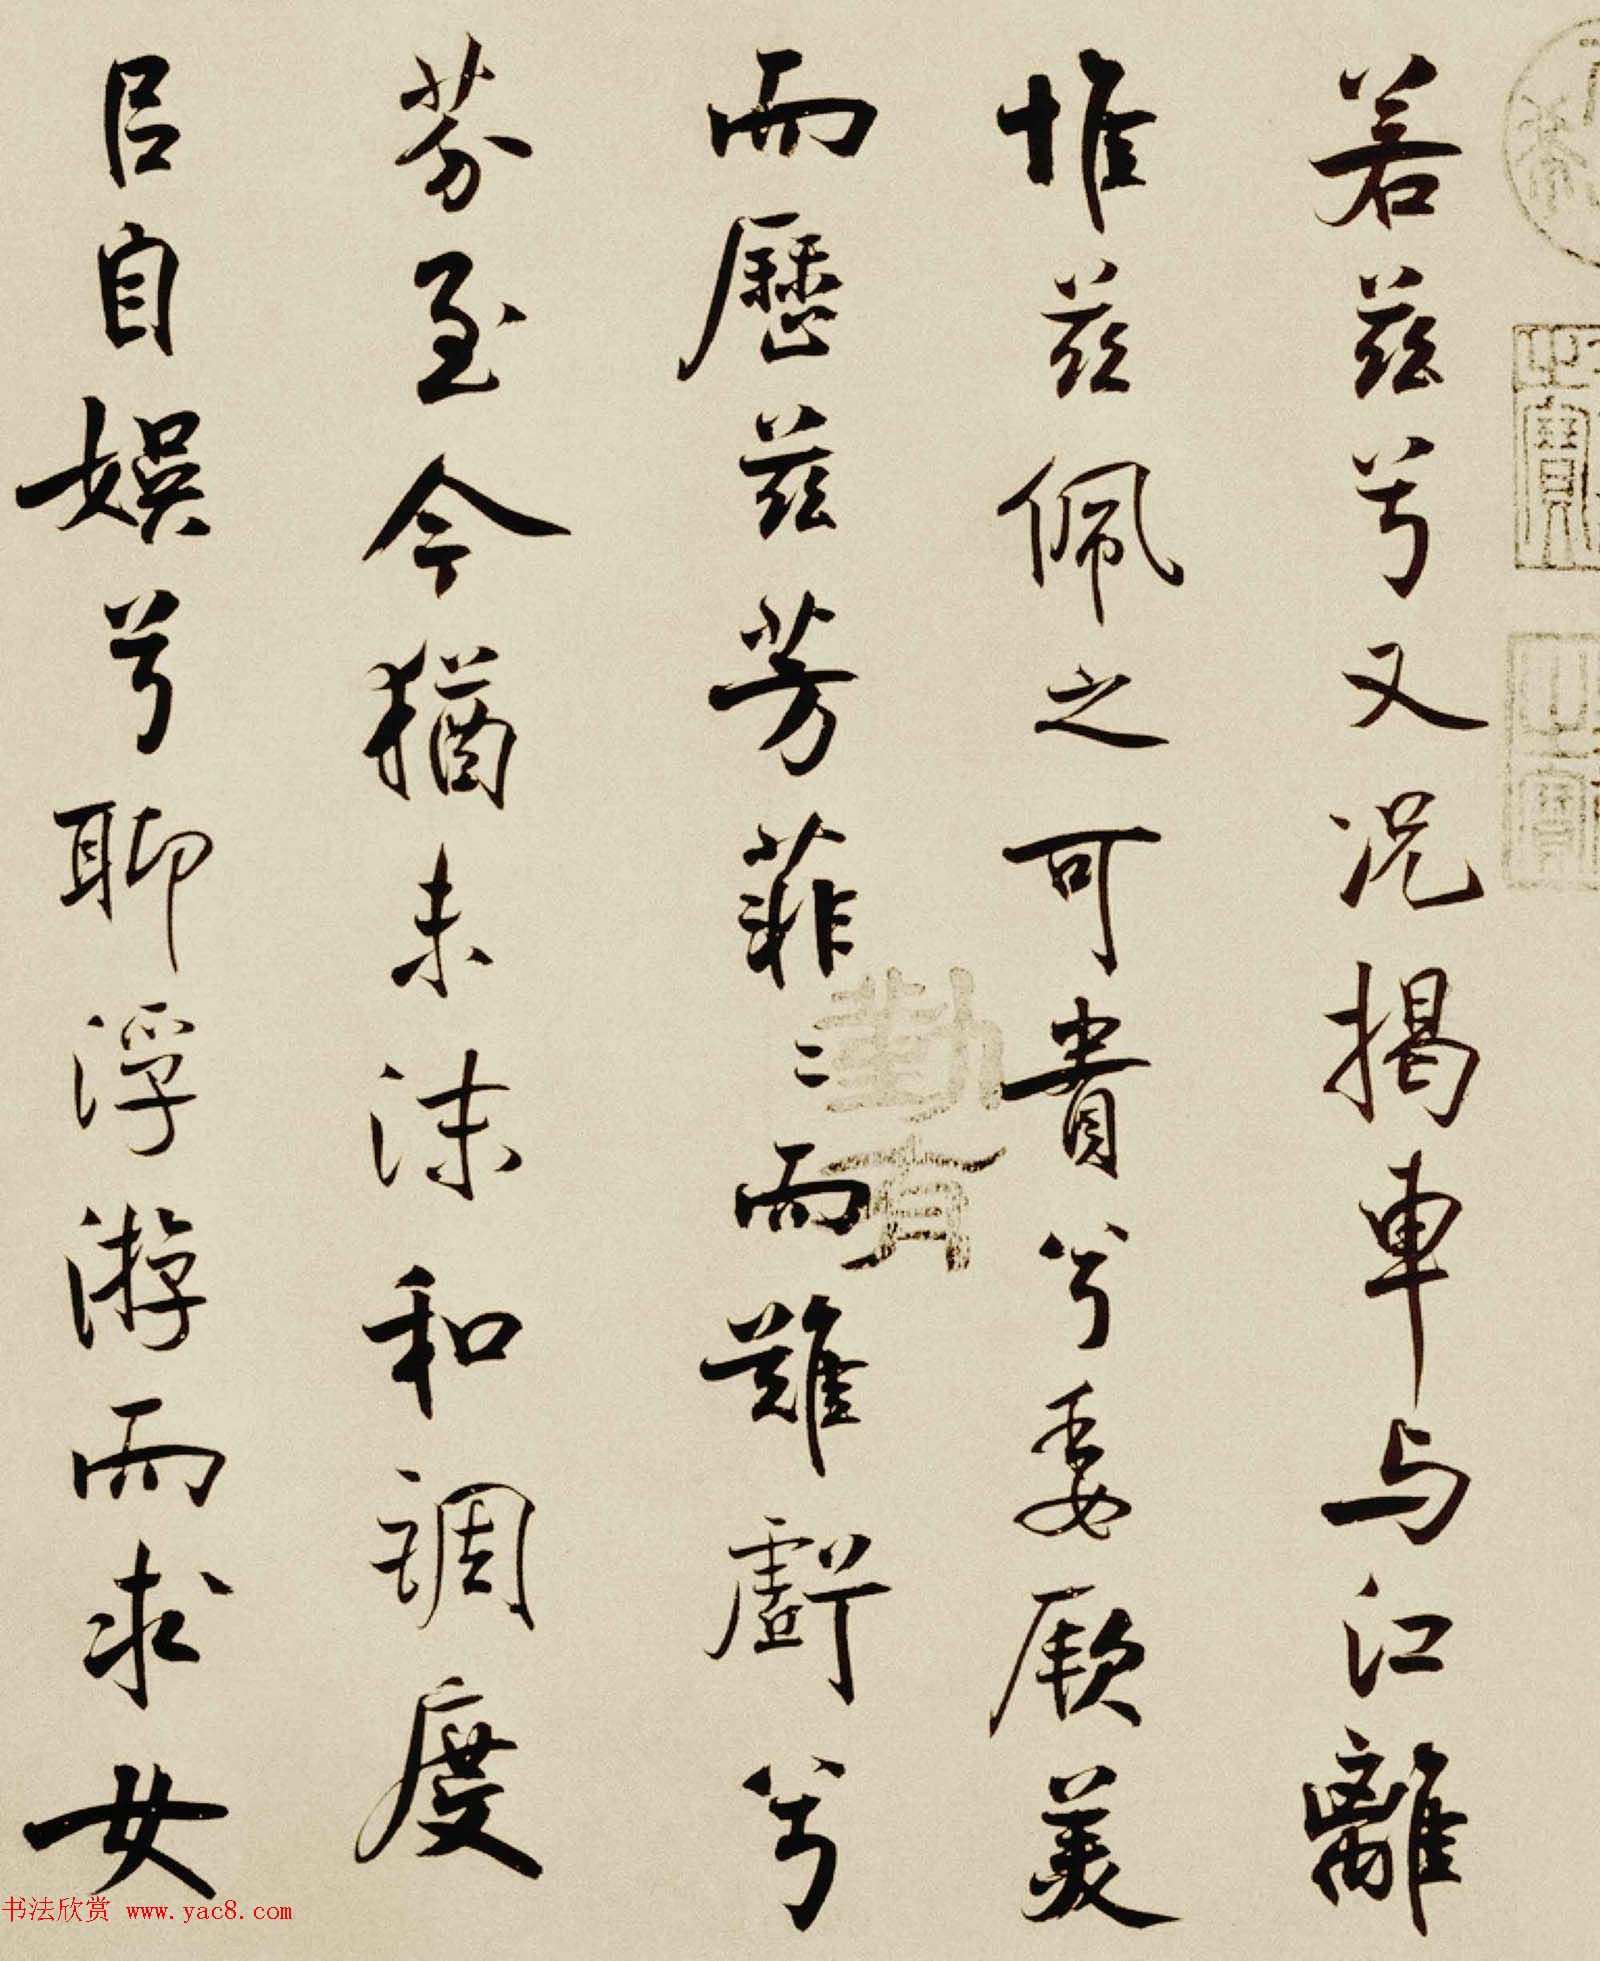 若茲兮又況揭車与江離
惟茲佩之可貴兮委厥美
而歷茲芳菲〻而難虧兮
芬至今猶未沫和調度
㠯自娛兮聊浮游而求女
勤有
书法欣赏 www.yac8.com